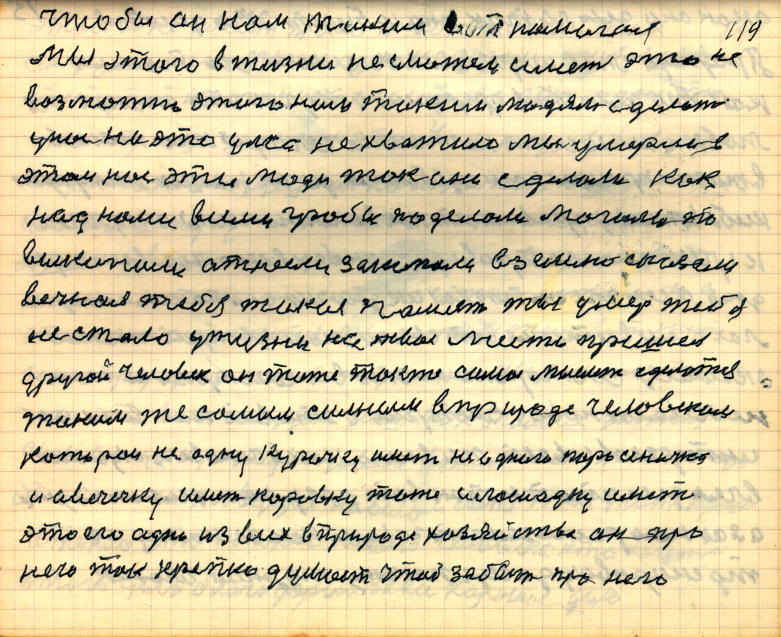 чтобы он нам таким вот помогал 119
мы этого в жизни не сможем имет это не
возможно этого нам таким людям сделат
ума на это у нас не хватило мы умерли в
этом нас эти люди так они сделали как
над нами всеми гробы поделали могилы
выкопали отнесли закопали в землю сказали
вечная тебя такая память ты умер тебя
не стало у жизни на твое место пришел
другой человек он тоже также само мысит сделатся
таким же самым силным в природе человеком
которои не одну курочку имет не одного поросеночка
и авечечку имет коровку тоже имет
это его одно из всех в природе хозяйства он про
него так крепко думает чтоб забыт про него